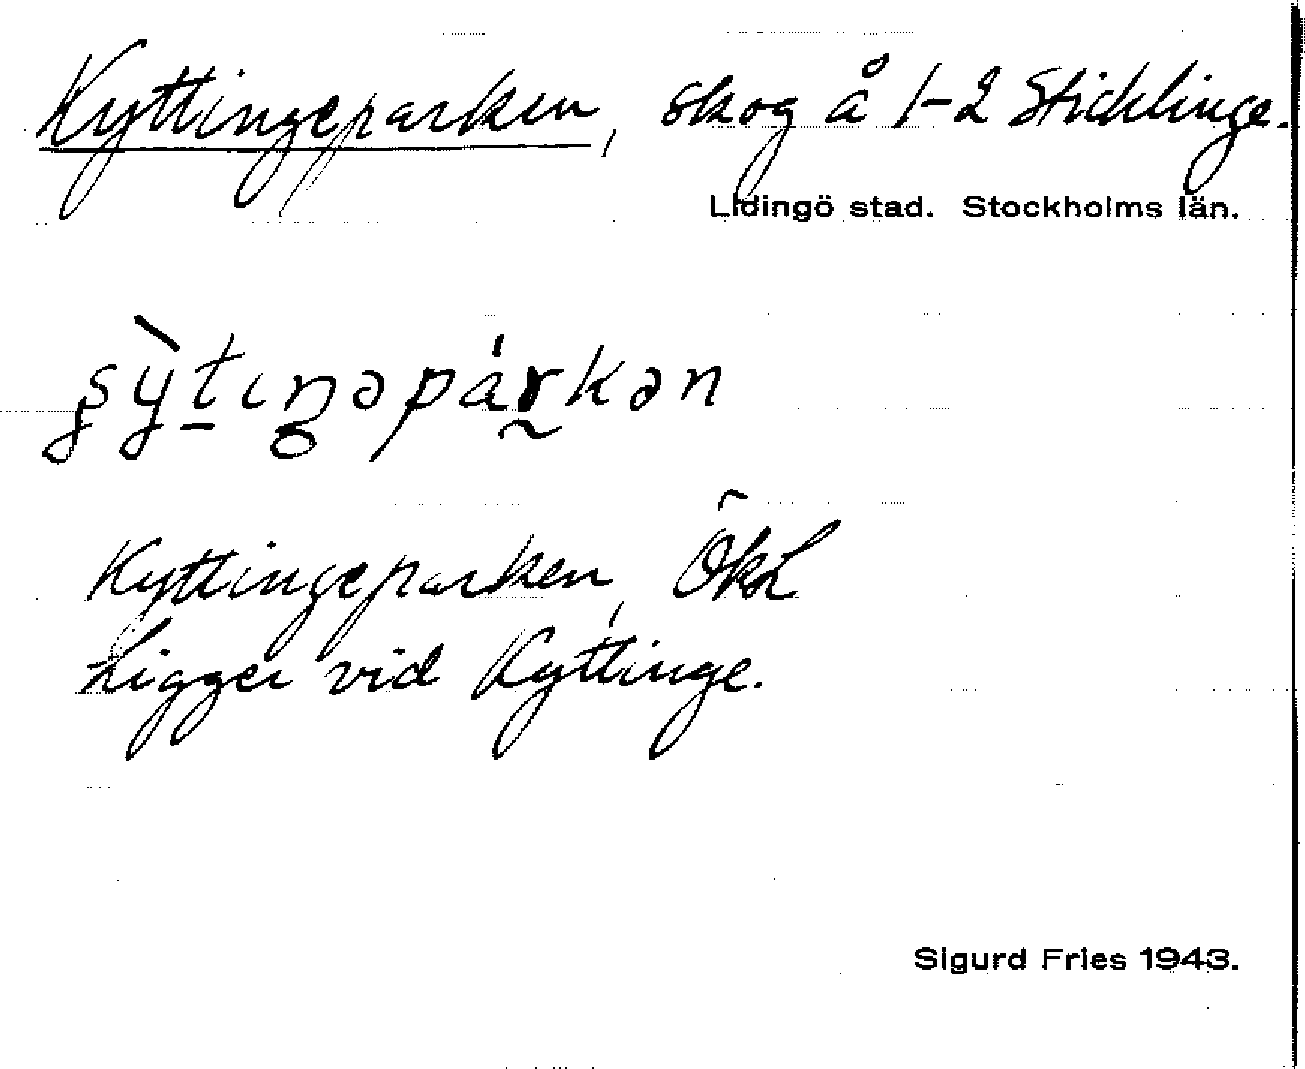 Kyttingeparken, skog å 1-2 Sticklinge.
Lidingö stad. Stockholms län.
ʂỳtıŋəpárkən
Kyttingeparken, ÖkL
Ligger vid Kyttinge.
Sigurd Fries 1943.